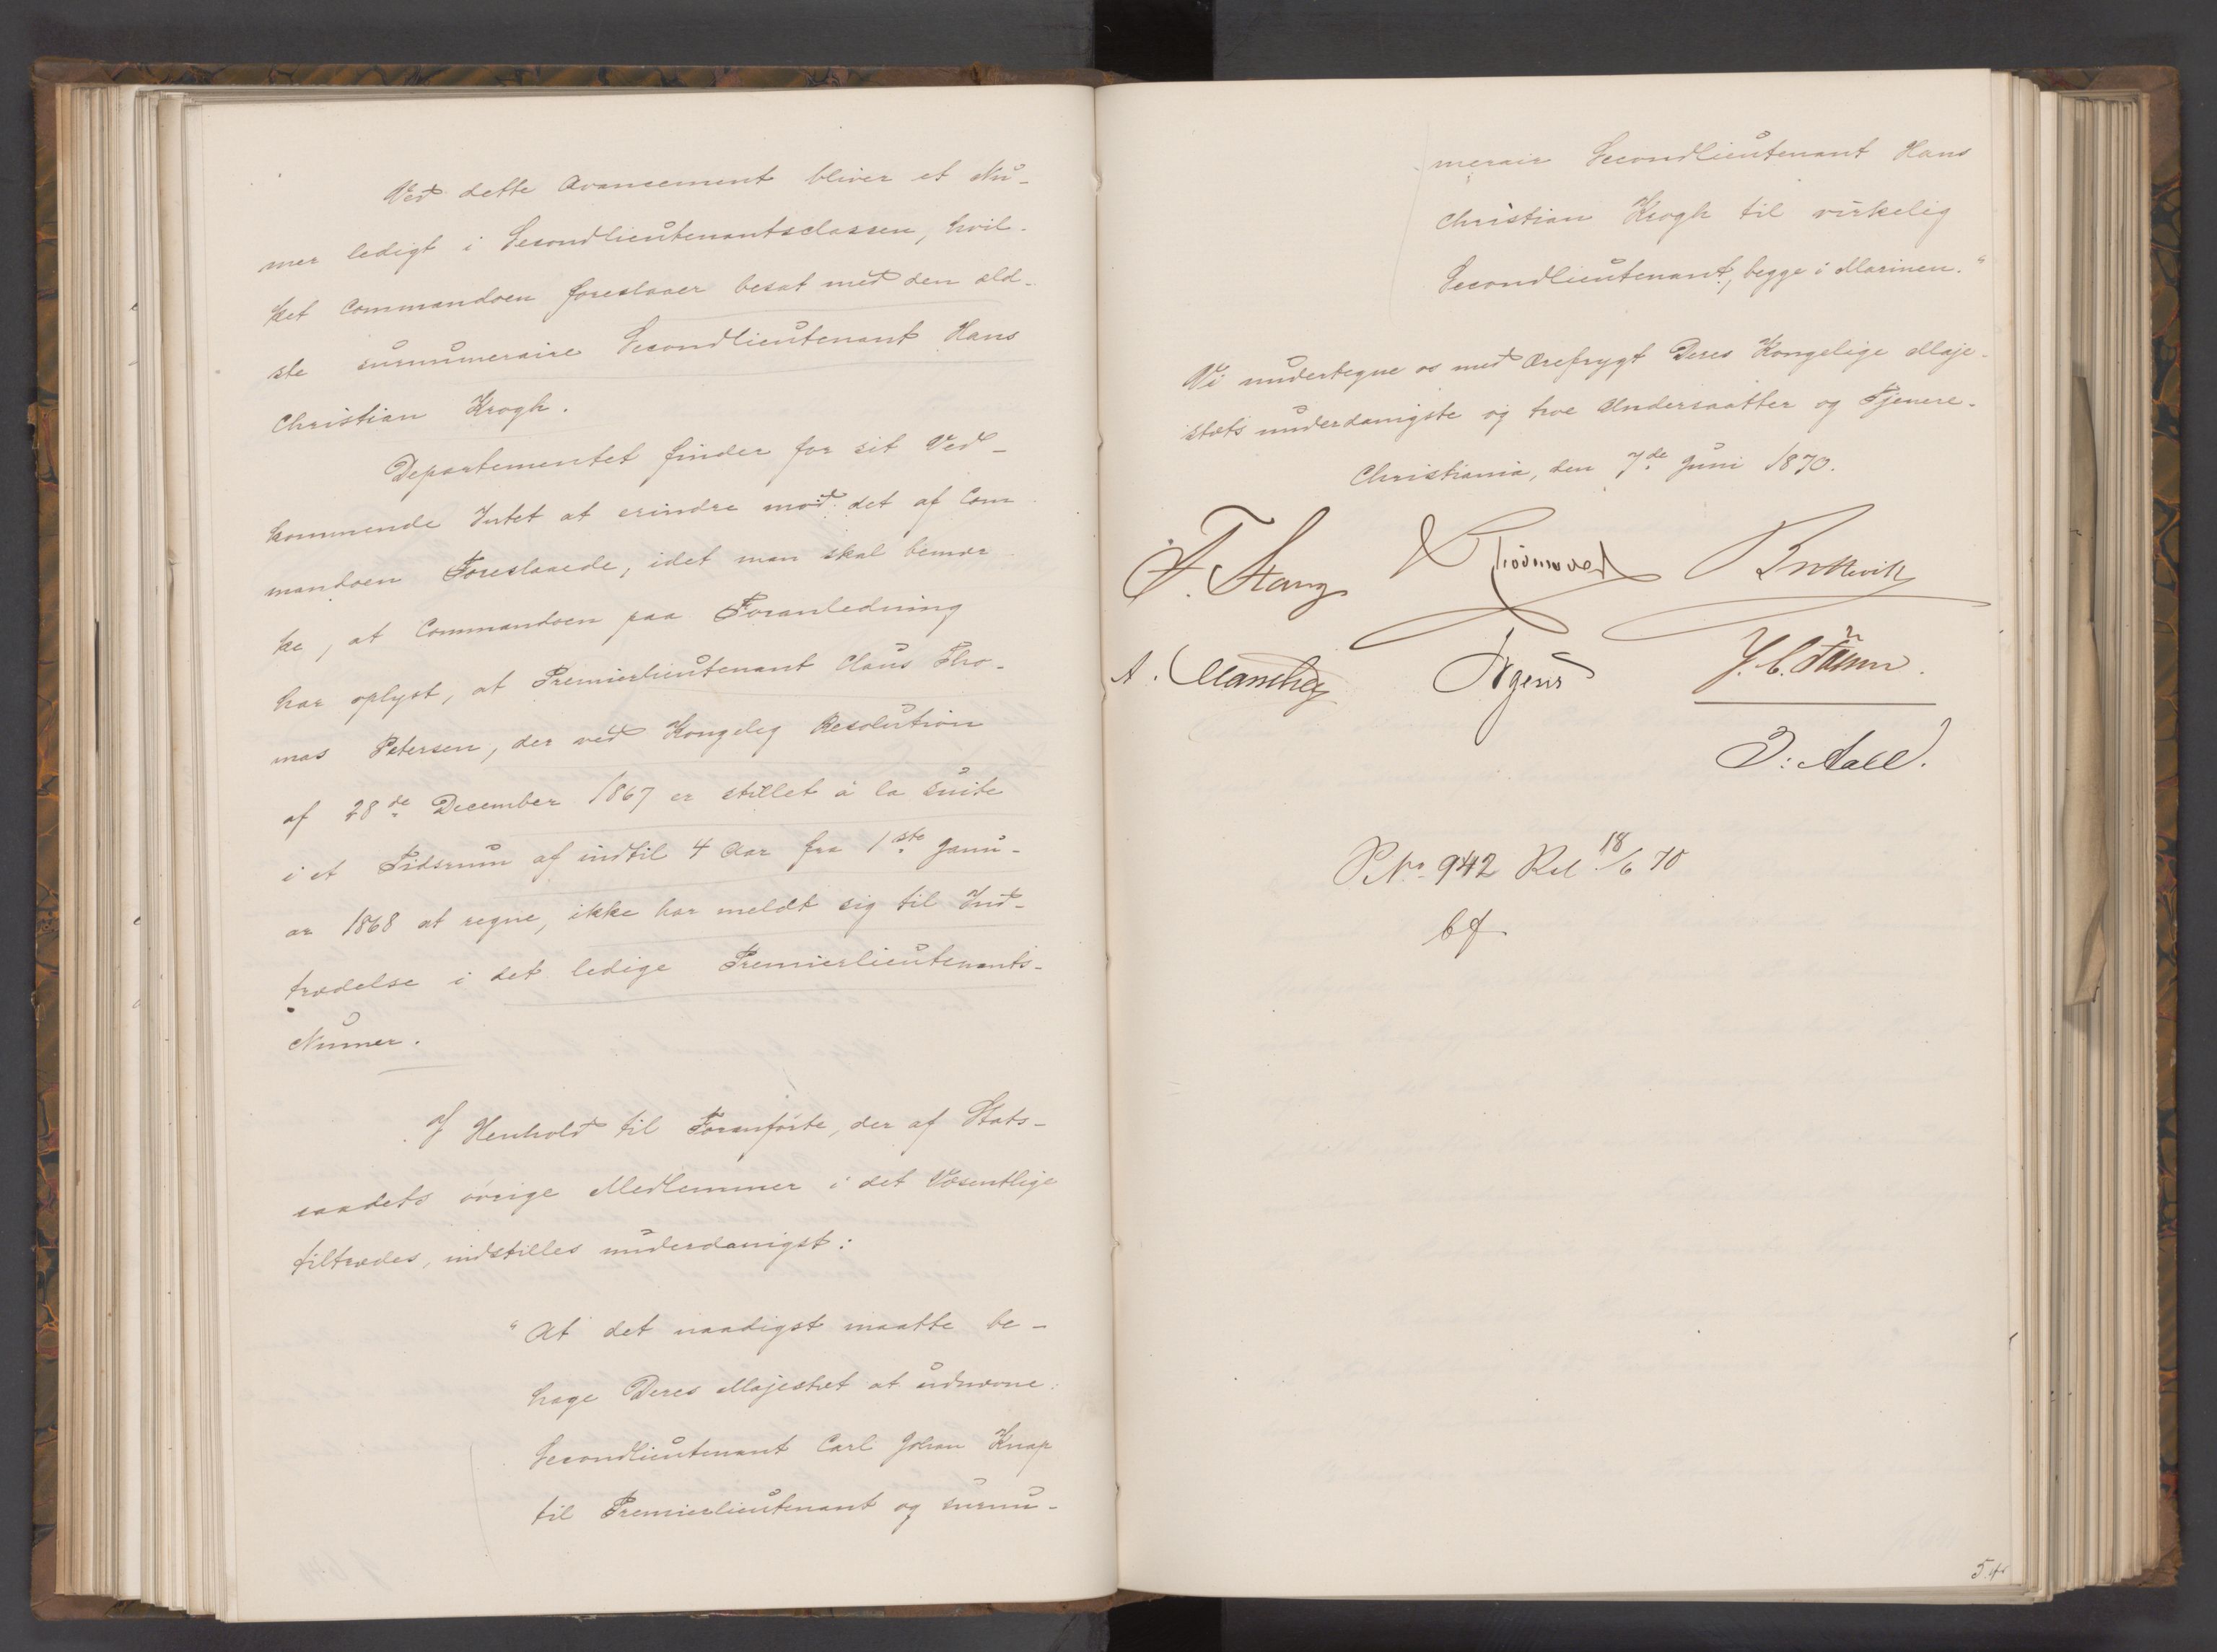 Ved dette Avancement bliver et Nu-
mer ledigt i Secondlieutenantsclassen, hvil-
ket Commandoen foreslaaer besat med den æld-
ste surnumeraire Secondlieutenant Hans
Christian Krogh.
Departementet finder for sit Ved-
kommende Intet at erindre mod det af Com
mandoen Foreslaaede, idet man skal bemær
ke, at Commandoen paa Foranledning
har oplyst, at Premierlieutenant Claus Tho-
mas Petersen, der ved Kongelig Resolution
af 28de December 1867 er stillet à la suite
i et Tidsrum af indtil 4 Aar fra 1ste Janu-
ar 1868 at regne, ikke har meldt sig til Ind-
trædelse i det ledige Premierlieutenants-
Numer.
I Henhold til Foranførte, der af Stats-
raadets øvrige Medlemmer i det Væsentlige
tiltrædes, indstilles underdanigst:
"At det naadigst maatte be-
hage Deres Majestæt at udnævne:
Secondlieutenant Carl Johan Knap
til Premierlieutenant og surnu-
merair Secondlieutenant Hans
Christian Krogh til virkelig
Secondlieutenant, begge i Marinen."
Vi undertegne os med Ærefrygt Deres Kongelige Maje-
stæts underdanigste og troe Undersaatter og Tjenere.
Christiania, den 7de Juni 1870.
F. Stang
A. Manthey Irgens
J. Aall.
P.No. 942 Res 18/6 70
54